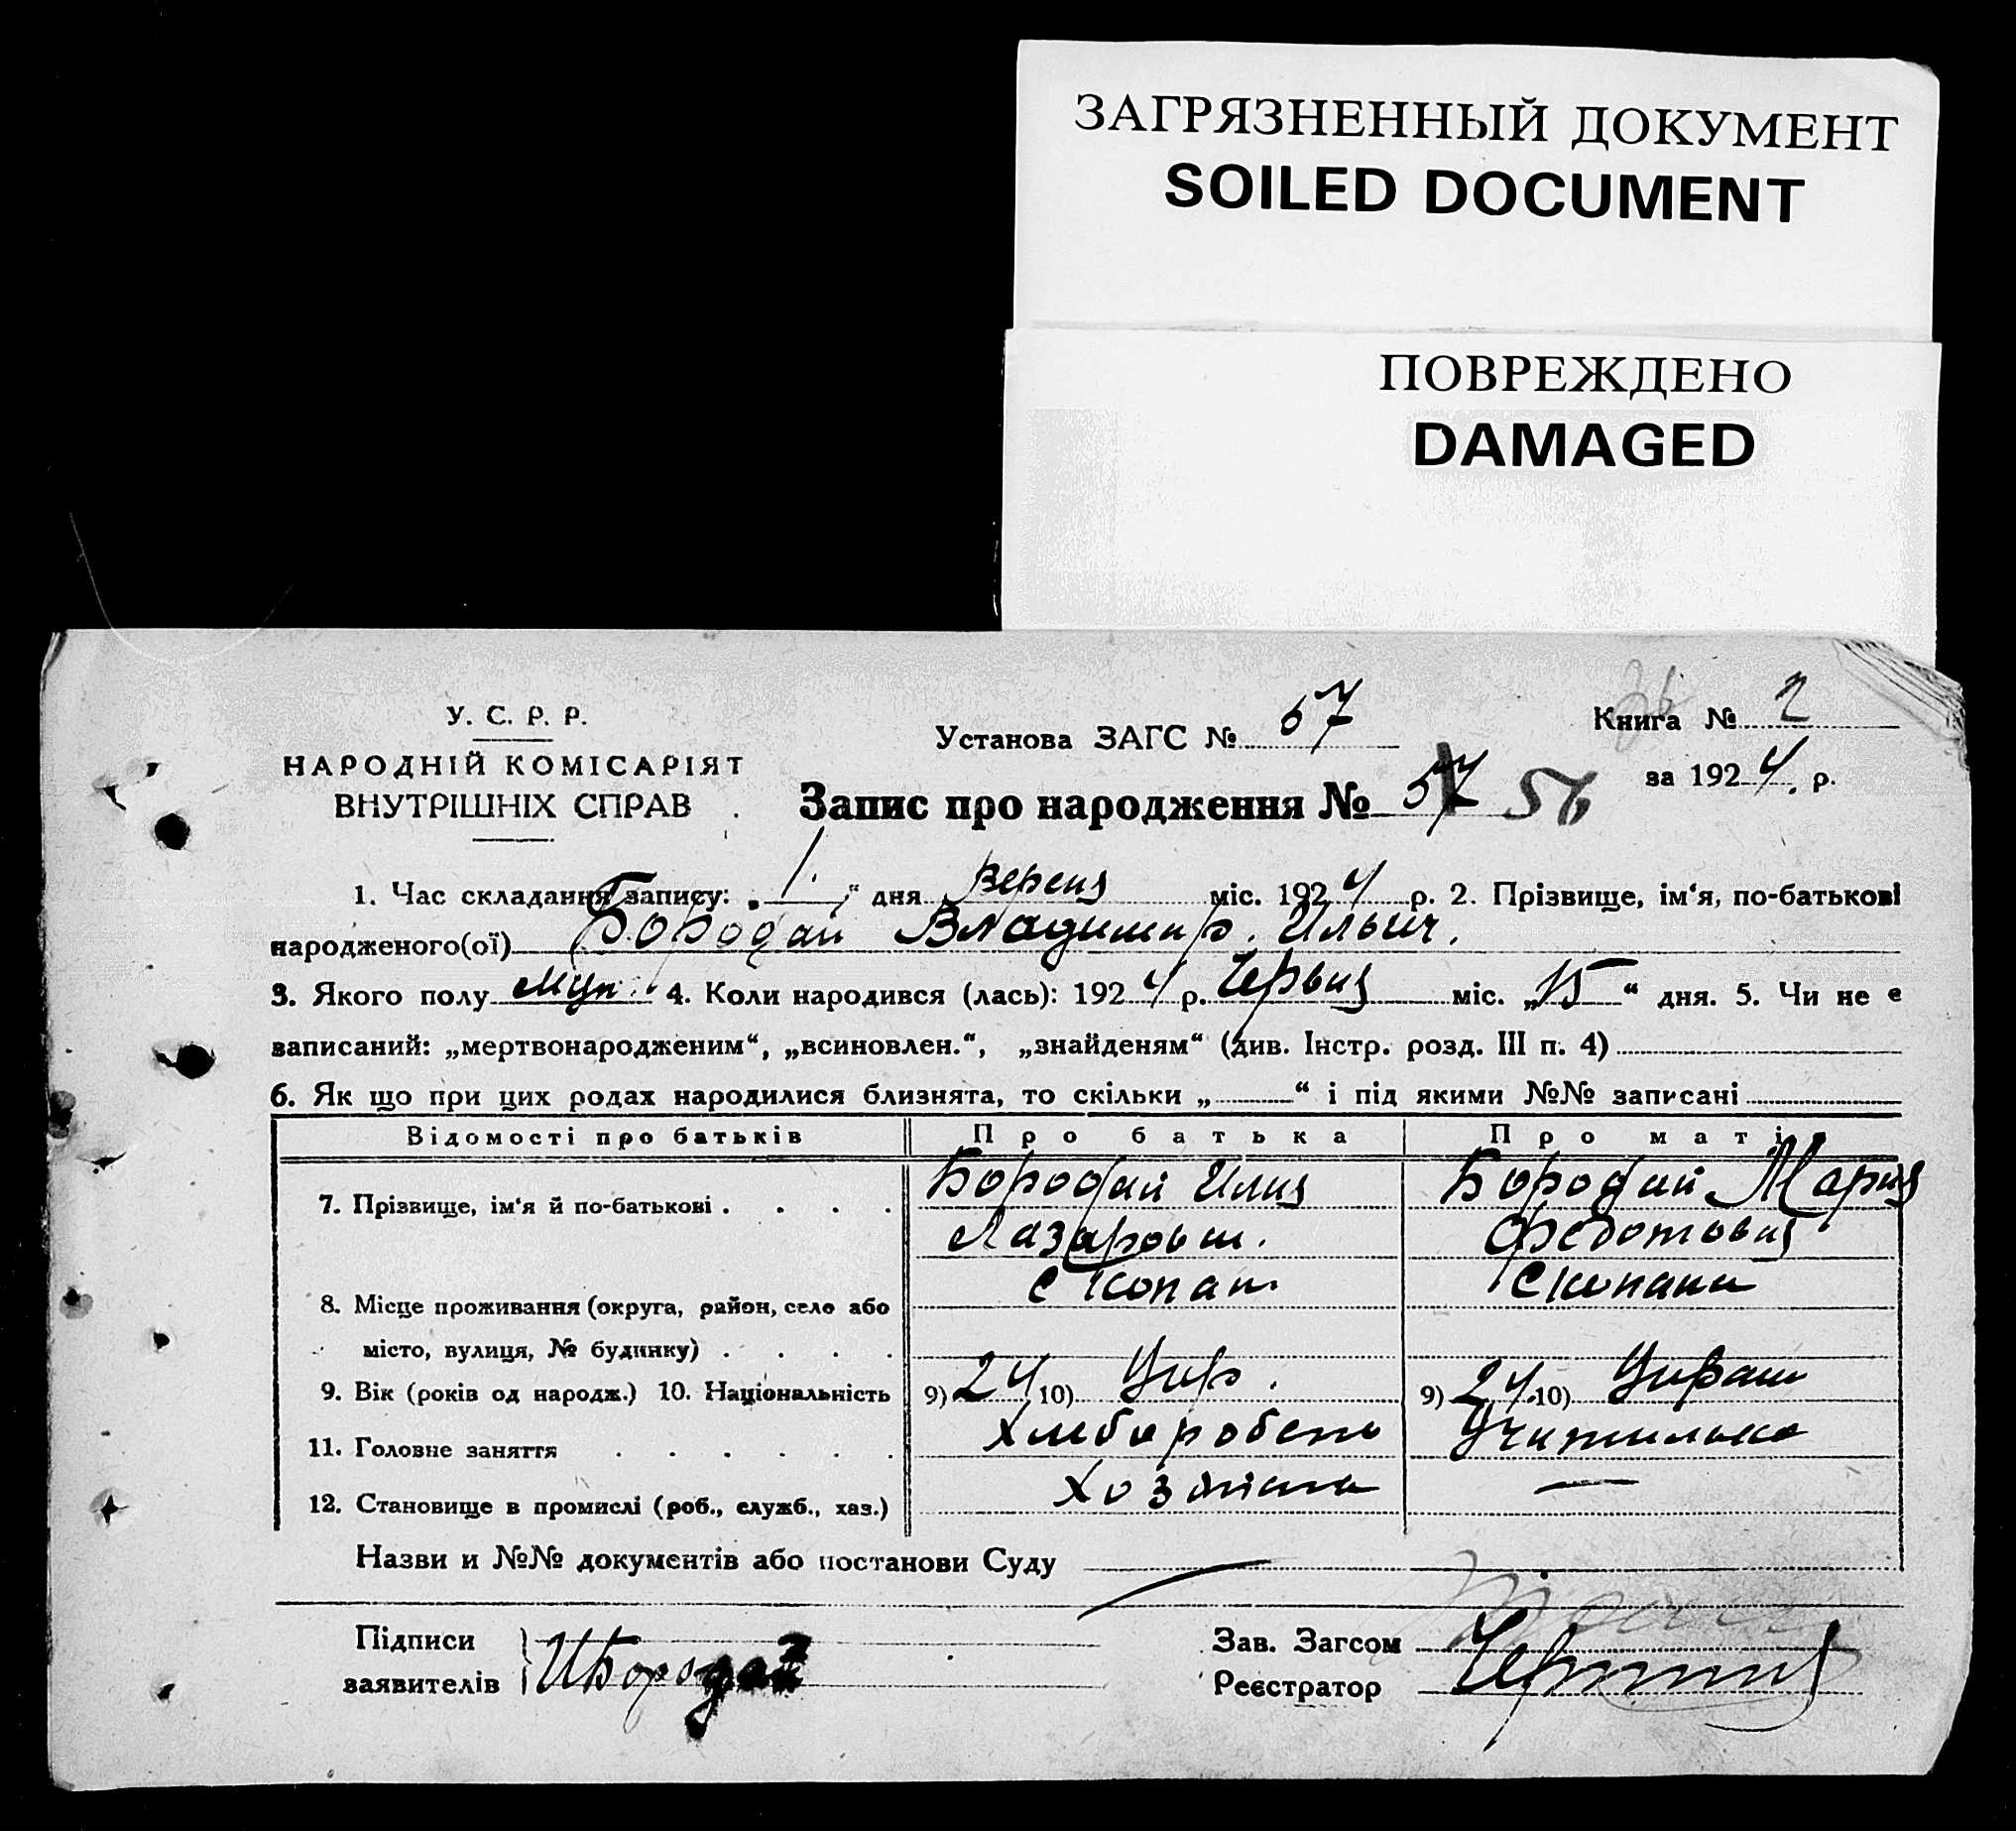 ЗАГРЯЗНЕННЫЙ ДОКУМЕНТ
SOILED DOCUMENT
ПОВРЕЖДЕНО
DAMAGED
У. С. Р. Р.
НАРОДНІЙ КОМІСАРІЯТ
ВНУТРІШНІХ СПРАВ
Установа ЗАГС № 57
Книга № 2
за 1924 р.
Запис про народження № 57 56
1. Час складання запису: „1.“ дня Версня міс. 1924 р. 2. Прізвище, ім‘я, по-батькові
народженого(ої) Бородай Владимир. Ильич.
3. Якого полу муж. 4. Коли народився (лась): 1924 р. Червня міс. „15“ дня. 5. Чи не є
записаний: „мертвонародженим“, „всиновлен.“, „знайденям“ (див. Інстр. розд. III п. 4)
6. Як що при цих родах народилися близнята, то скільки „ “ і під якими №№ записані
Відомості про батьків Про батька Про маті
7. Прізвище, ім‘я й по-батькові . . . . Бородай Илия Бородай Мария
Лазарович. Федотовня
8. Місце проживання (округа, район, село або с Копан. с Копани
місто, вулиця, № будинку) . . . .
9. Вік (років од народж.) 10. Національність 9) 24 10) Укр. 9) 24. 10) Украин
11. Головне заняття . . . . . . Хлеборобець Учителька
12. Становище в промислі (роб., служб., хаз.) Хозяїна —
Назви и №№ документів або постанови Суду —
Підписи Зав. Загсом
заявителів ИБородай Реєстратор